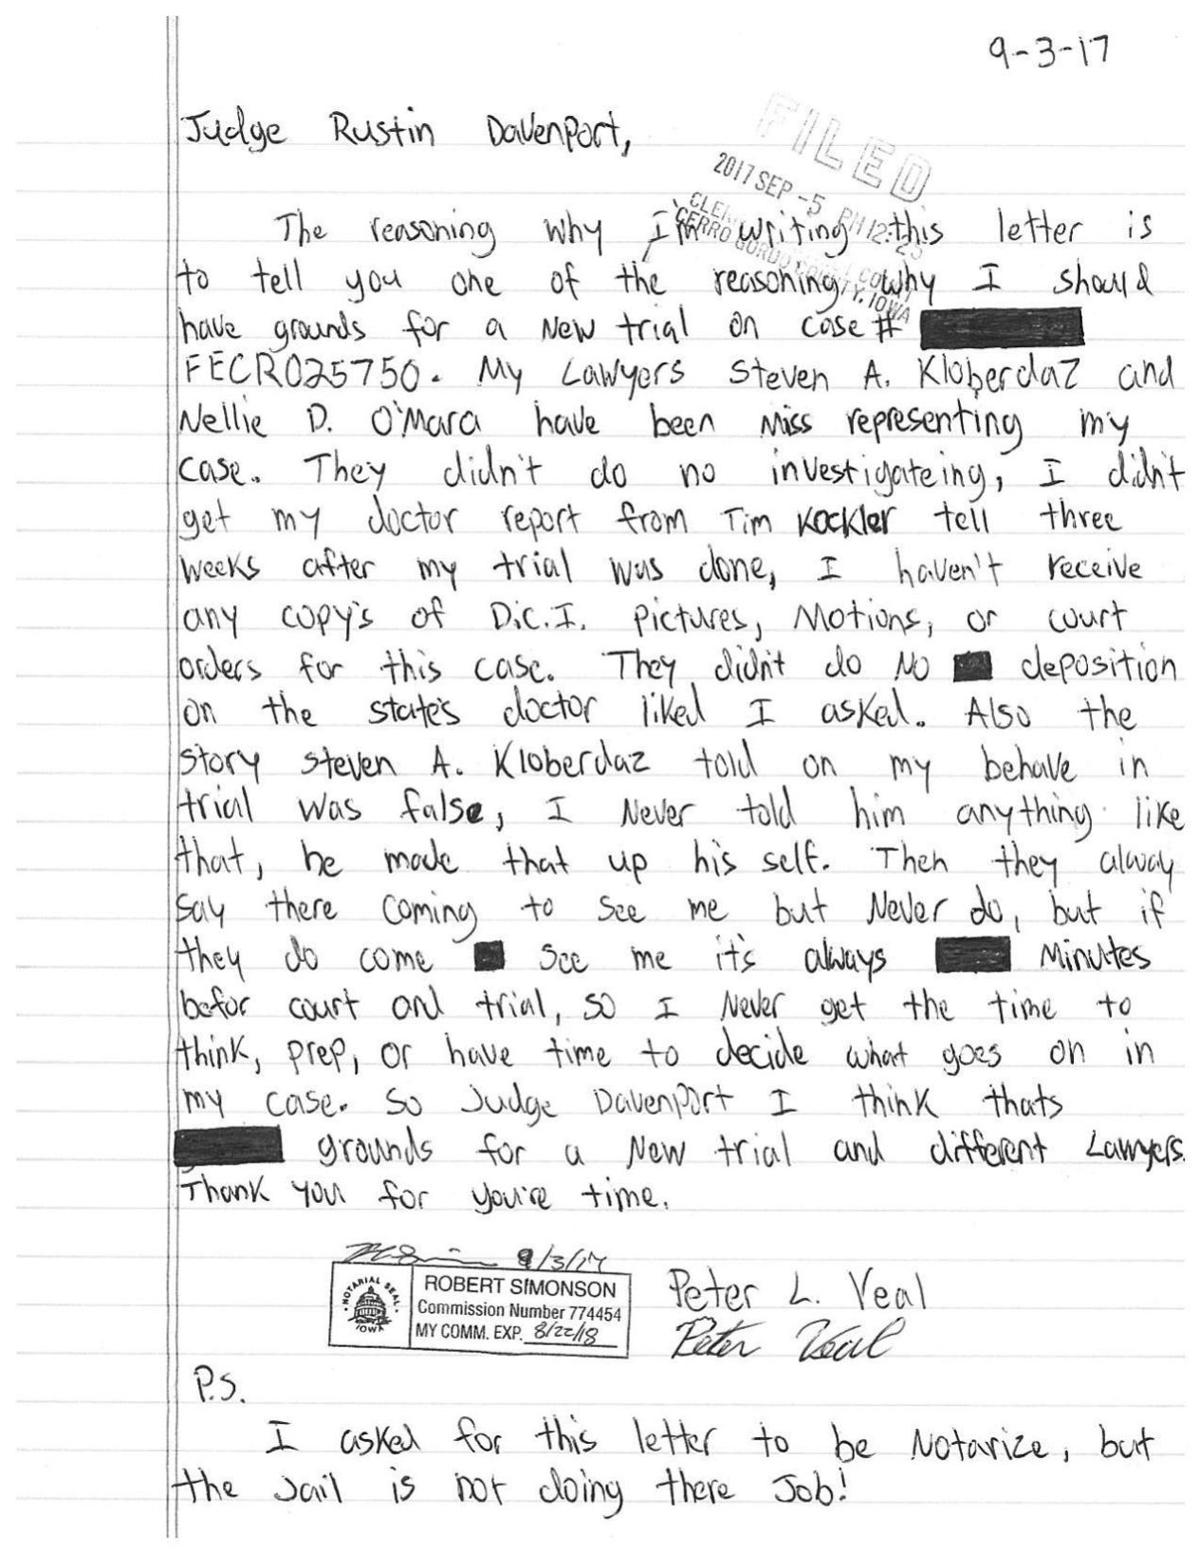 9-3-17
Judge Rustin Davenport,
FILED
2017 SEP -5 PM 12:23
CLERK COURT
CERRO GORDO COUNTY, IOWA
The reasoning why I'm writing this letter is
to tell you one of the reasoning why I should
have grounds for a New trial on case #
FECR025750. My Lawyers Steven A. Kloberdaz and
Nellie D. O'Mara have been Miss representing my
case. They didn't do no investigateing, I didn't
get my doctor report from Tim Kockler tell three
weeks after my trial was done, I haven't receive
any copy's of D.C.I. pictures, Motions, or court
orders for this case. They didn't do No deposition
on the state's doctor liked I asked. Also the
story Steven A. Kloberdaz told on my behave in
trial was false, I Never told him anything like
that, he made that up his self. Then they alway
say there coming to see me but Never do, but if
they do come see me it's always Minutes
befor court and trial, so I Never get the time to
think, prep, or have time to decide what goes on in
my case. So Judge Davenport I think thats
grounds for a New trial and different Lawyers.
Thank you for you're time.
9/3/17
NOTARIAL SEAL IOWA
ROBERT SIMONSON
Commission Number 774454
MY COMM. EXP. 8/22/18
Peter L. Veal
Peter Veal
P.S.
I asked for this letter to be Notarize, but
the Jail is not doing there Job!